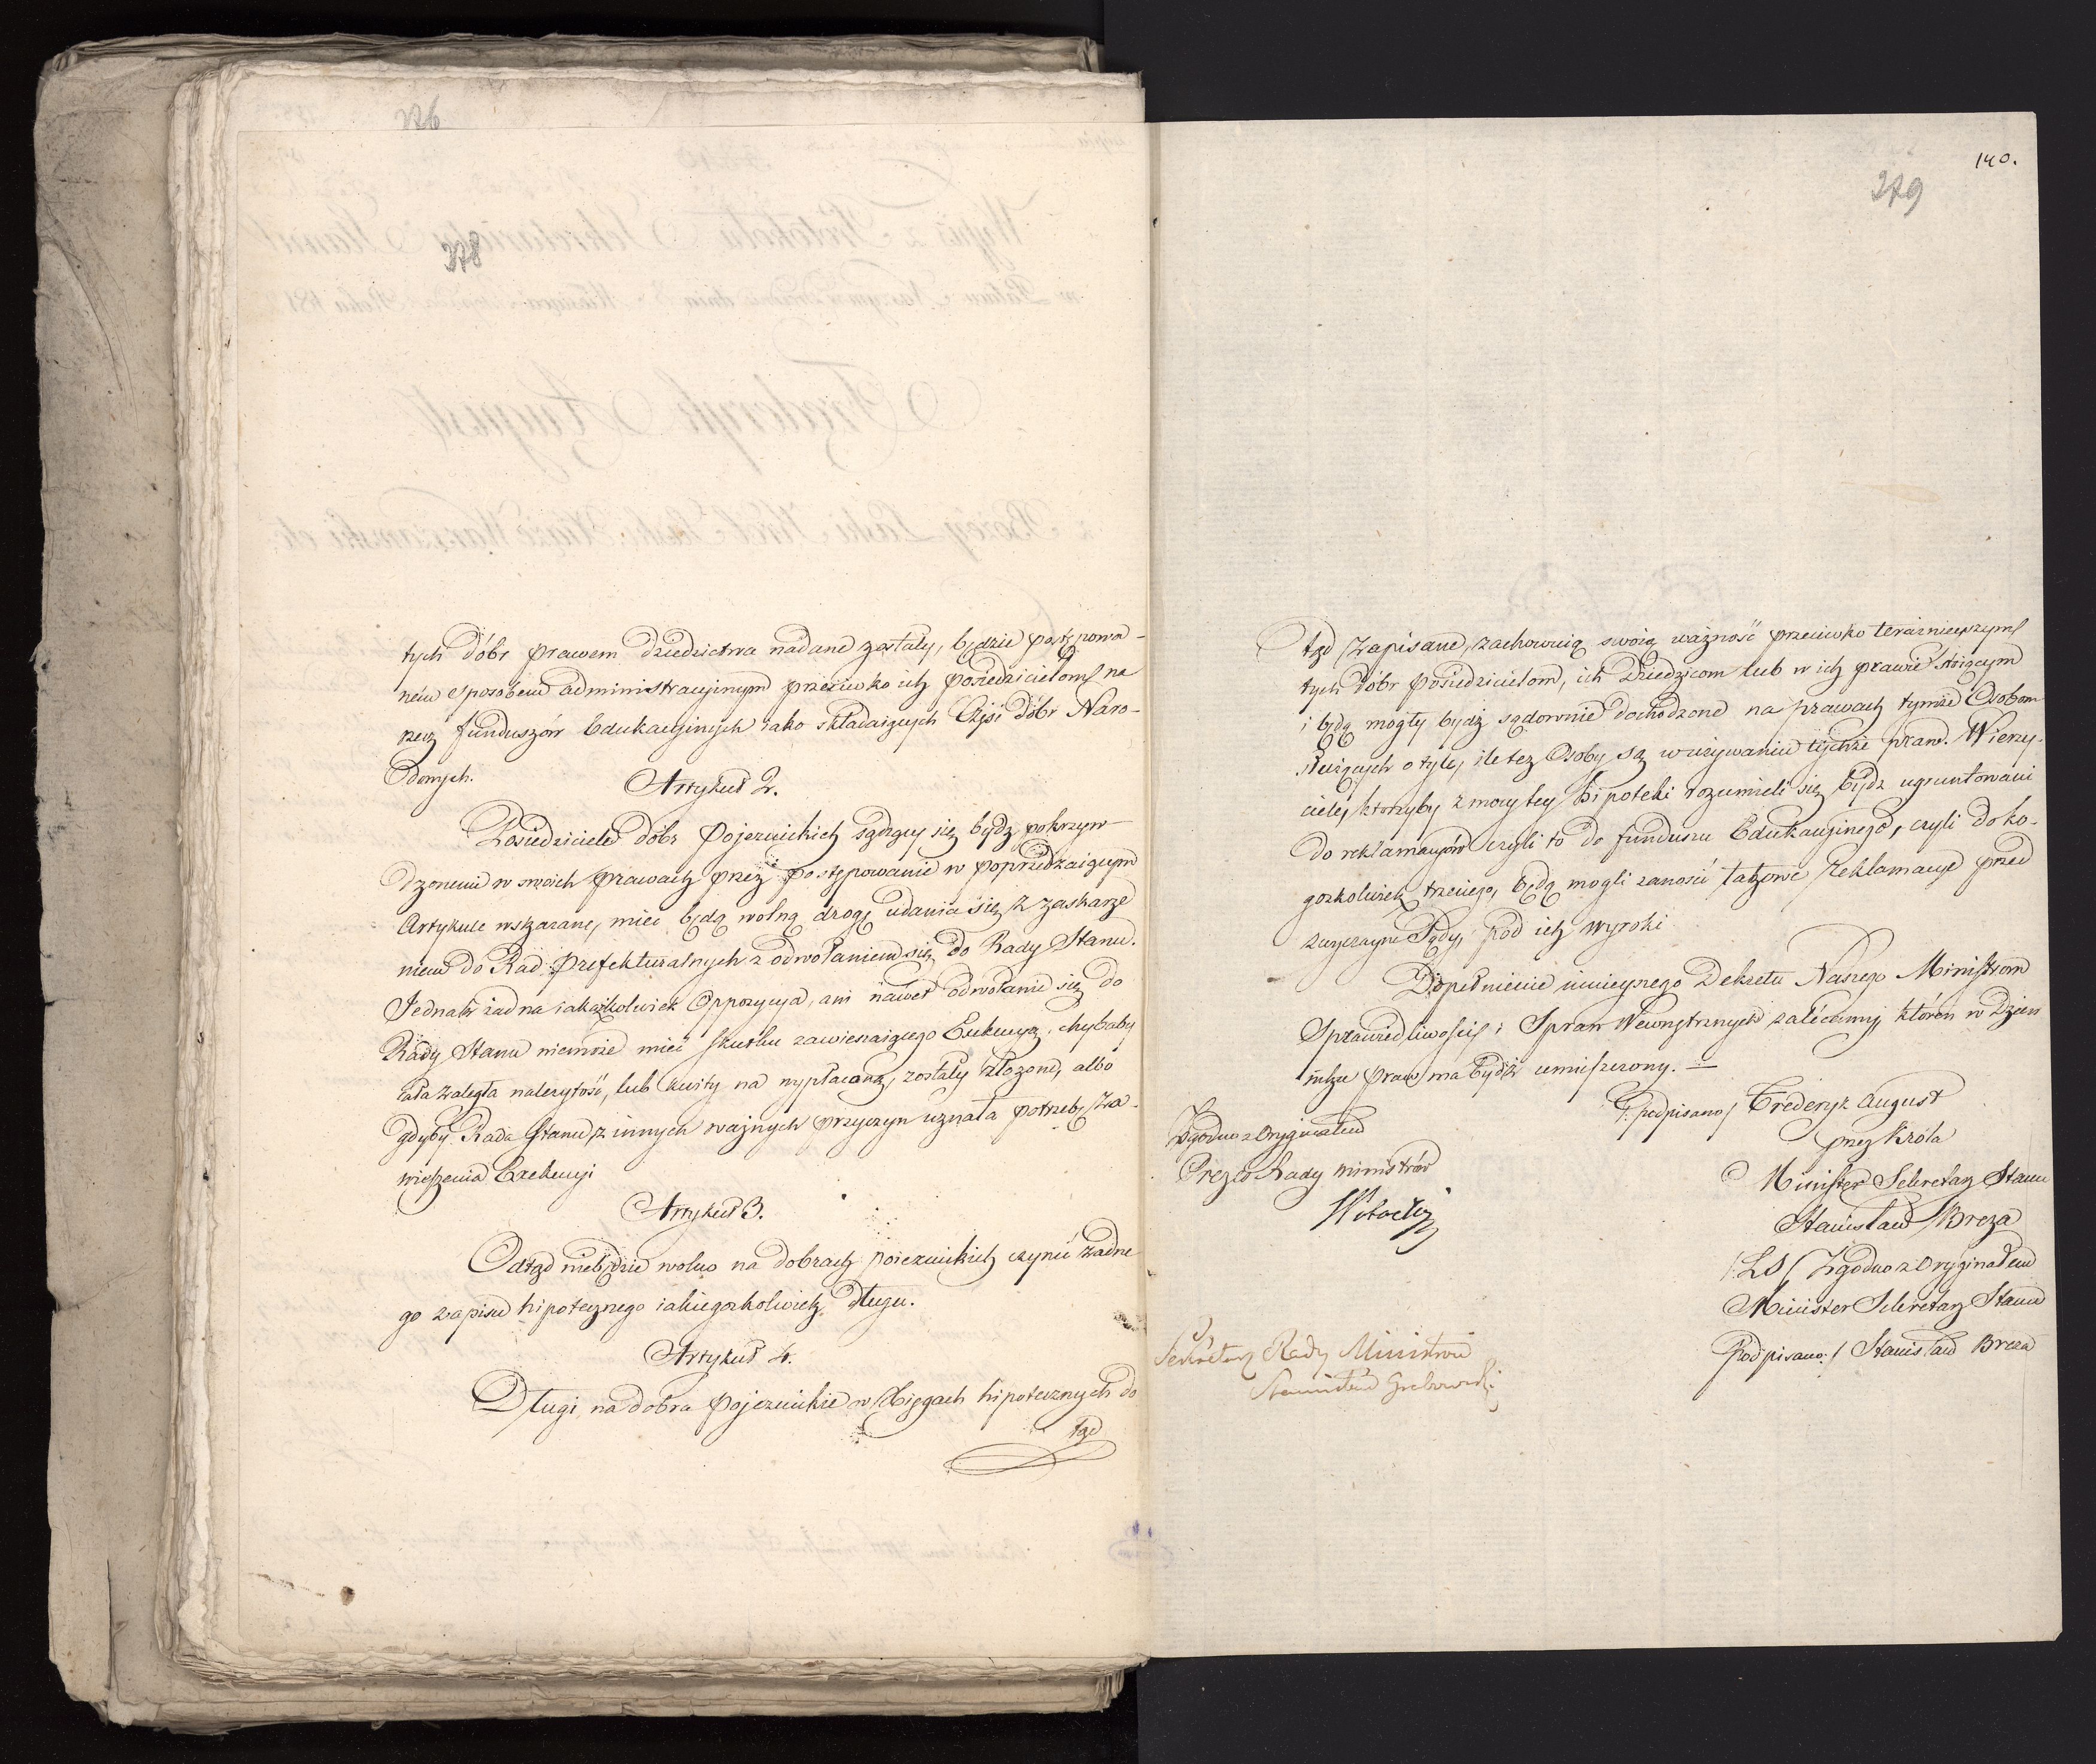 276
278
tych dóbr prawem dziedzictwa nadane zostały, będzie postępowa-
niem sposobem administracyjnym przeciwko ich posiedzicielom na
rzecz funduszów Edukacyjnych iako składaiących Część dóbr Naro-
dowych.
Artykuł 2.
Posiedziciele dóbr Pojezuickich sądzący się bydź pokrzyw-
dzonemi w swoich prawach przez postępowanie w poprzedzaiącym
Artykule wskazane, mieć będą wolną drogę udania się z zaskarże
niem do Rad Prefekturalnych z odwołaniem się do Rady Stanu.
Jednak żadna iakażkolwiek Oppozycya, ani nawet odwołanie się do
Rady Stanu niemoże mieć skutku zawieszaiącego Exekucyą, chybaby
cała zaległa należytość, lub kwity na wypłacone, zostały złożone, albo
gdyby Rada Stanu z innych ważnych przyczyn uznała potrzebę za-
wieszenia Exekucyi
Artykuł 3.
Odtąd niebędzie wolno na dobrach poiezuickich czynić żadne
go zapisu hipotecznego iakiegożkolwiek długu.
Artykuł 4.
Długi na dobra Pojezuickie w Xięgach hipotecznych do
tąd
140.
279
tąd zapisane, zachowuią swoią ważność przeciwko teraźnieyszym
tych dóbr Posiedzicielom, ich Dziedzicom lub w ich prawie stoiącym
i będą mogły bydź sądownie dochodzone na prawach tymże Osobom
służących o tyle, ile też Osoby są w używaniu tychże praw. Wierzy-
ciele, którzyby z mocy tey hipoteki rozumieli się bydź ugruntowani
do reklamacyów czyli to do funduszu Edukacyinego, czyli do ko-
gożkolwiek trzeciego, będą mogli zanosić takowe Reklamacye przed
zwyczayne Sądy, pod ich wyroki
Dopełnienie ninieyszego Dekretu Naszego Ministrom
Sprawiedliwości i Spraw Wewnętrznych zalecamy, któren w Dzien
niku praw ma bydź umieszczony.
/: podpisano / Frederyk August
przez Króla
Minister Sekretarz Stanu
Stanisław Breza
/: LS / Zgodno z Oryginałem
Minister Sekretarz Stanu
Podpisano: / Stanisław Breza
Zgodno z Oryginałem
Prezes Rady Ministrów
Sekretarz Rady Ministrów
Stanisław Grabowski